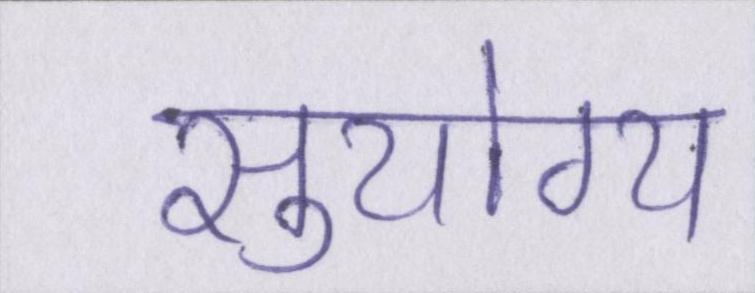 सुयोग्य